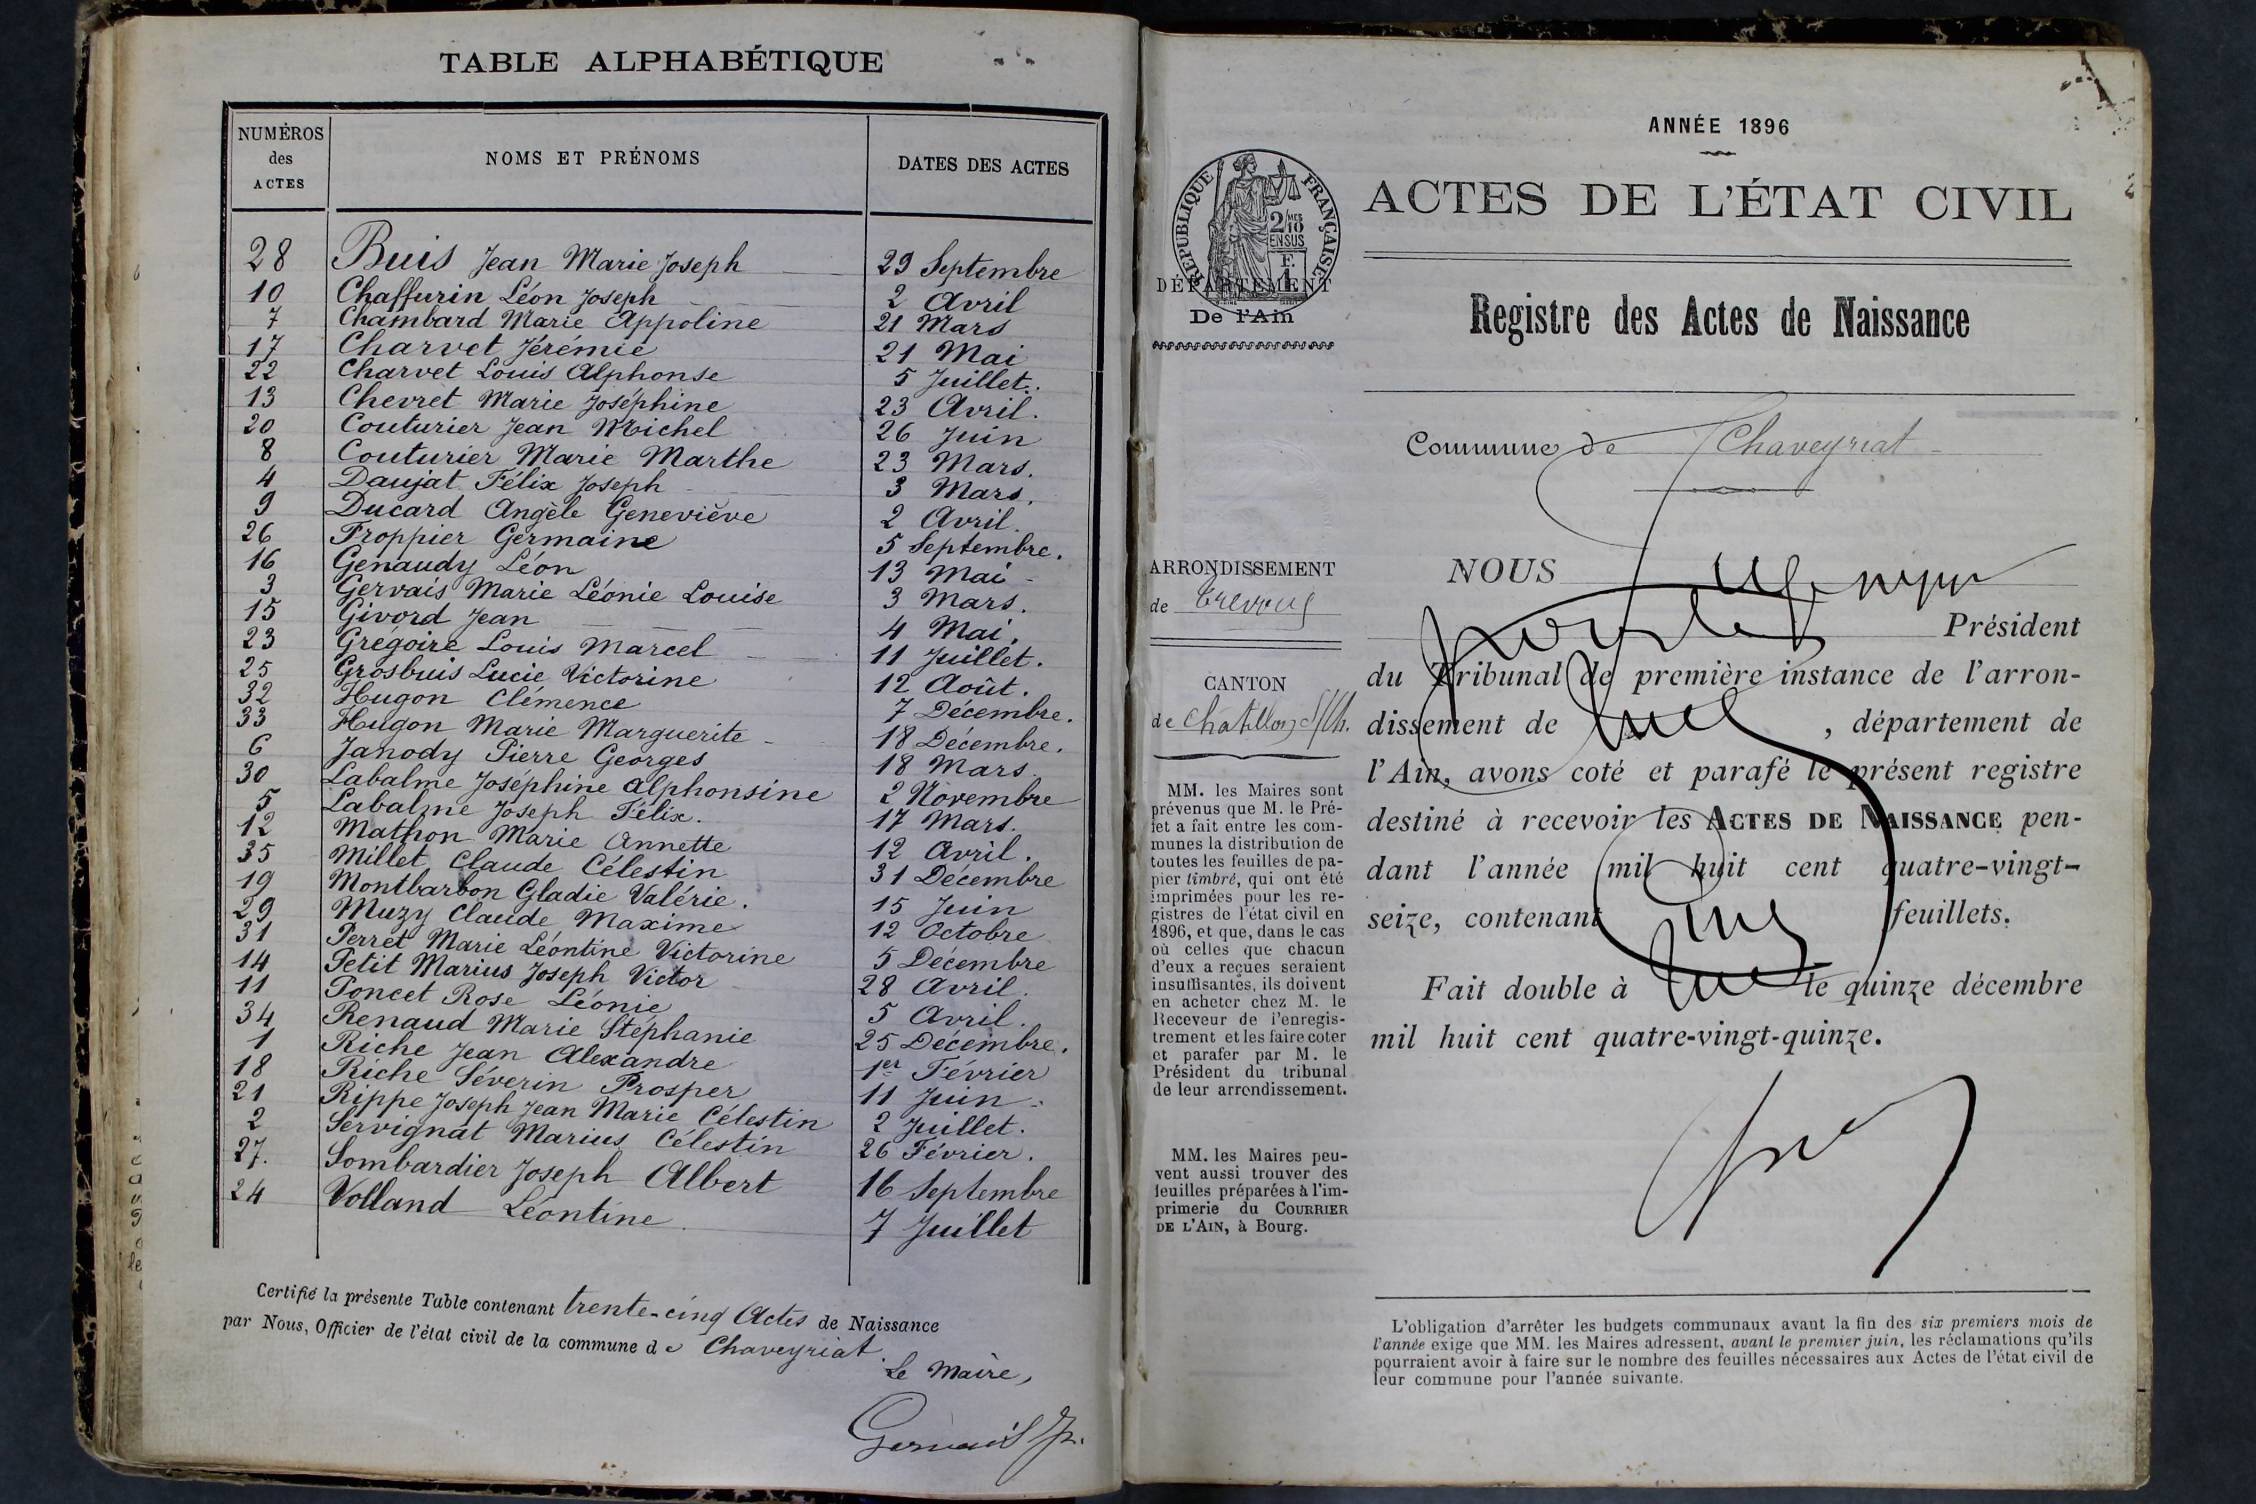 TABLE ALPHABÉTIQUE
NUMÉROS des ACTES NOMS ET PRÉNOMS DATES DES ACTES
28 Buis Jean Marie Joseph 29 Septembre
10 Chaffurin Léon Joseph 2 Avril
7 Chambard Marie Appoline 21 Mars
17 Charvet Jérémie 21 Mai
22 Charvet Louis Alphonse 5 Juillet.
13 Chevret Marie Joséphine 23 Avril.
20 Couturier Jean Michel 26 Juin
8 Couturier Marie Marthe 23 Mars.
4 Daujat Félix Joseph 3 Mars.
9 Ducard Angèle Geneviève 2 Avril.
26 Froppier Germaine 5 Septembre.
16 Genaudy Léon 13 Mai
3 Gervais Marie Léonie Louise 3 Mars.
15 Givord Jean 4 Mai.
23 Grégoire Louis Marcel 11 Juillet.
25 Grosbuis Lucie Victorine 12 Août.
32 Hugon Clémence 7 Décembre.
33 Hugon Marie Marguerite 18 Décembre.
6 Janody Pierre Georges 18 Mars.
30 Labalme Joséphine Alphonsine 2 Novembre
5 Labalme Joseph Félix. 17 Mars.
12 Mathon Marie Annette 12 Avril.
35 Millet Claude Célestin 31 Décembre
19 Montbarbon Gladie Valérie. 15 Juin
29 Muzy Claude Maxime 12 Octobre
31 Perret Marie Léontine Victorine 5 Decembre
14 Petit Marius Joseph Victor 28 Avril.
11 Poncet Rose Léonie 5 Avril.
34 Renaud Marie Stéphanie 25 Décembre.
1 Riche Jean Alexandre 1er Février
18 Riche Séverin Prosper 11 Juin
21 Rippe Joseph Jean Marie Célestin 2 Juillet.
2 Servignat Marius Célestin 26 Février.
27. Sombardier Joseph Albert 16 Septembre
24 Volland Léontine 7 Juillet
Certifié la présente Table contenant trente-cinq Actes de Naissance
par Nous, Officier de l'état civil de la commune de Chaveyriat.
Le Maire,
Gervais
ANNÉE 1896
RÉPUBLIQUE FRANÇAISE
2/10 MES
EN SUS
F.
1
DÉPARTEMENT
De l'Ain
ACTES DE L'ÉTAT CIVIL
Registre des Actes de Naissance
Commune de Chaveyriat
ARRONDISSEMENT
de Trévoux
CANTON
de Chatillon s/Ch.
MM. les Maires sont
prévenus que M. le Pré-
fet a fait entre les com-
munes la distribution de
toutes les feuilles de pa-
pier timbré, qui ont été
imprimées pour les re-
gistres de l'état civil en
1896, et que, dans le cas
où celles que chacun
d'eux a reçues seraient
insuffisantes, ils doivent
en acheter chez M. le
Receveur de l'enregis-
trement et les faire coter
et parafer par M. le
Président du tribunal
de leur arrondissement.
MM. les Maires peu-
vent aussi trouver des
feuilles préparées à l'im-
primerie du COURRIER
DE L'AIN, à Bourg.
NOUS
Président
du Tribunal de première instance de l'arron-
dissement de , département de
l'Ain, avons coté et parafé le présent registre
destiné à recevoir les ACTES DE NAISSANCE pen-
dant l'année mil huit cent quatre-vingt-
seize, contenant feuillets.
Fait double à le quinze décembre
mil huit cent quatre-vingt-quinze.
L'obligation d'arrêter les budgets communaux avant la fin des six premiers mois de
l'année exige que MM. les Maires adressent, avant le premier juin, les réclamations qu'ils
pourraient avoir à faire sur le nombre des feuilles nécessaires aux Actes de l'état civil de
leur commune pour l'année suivante.